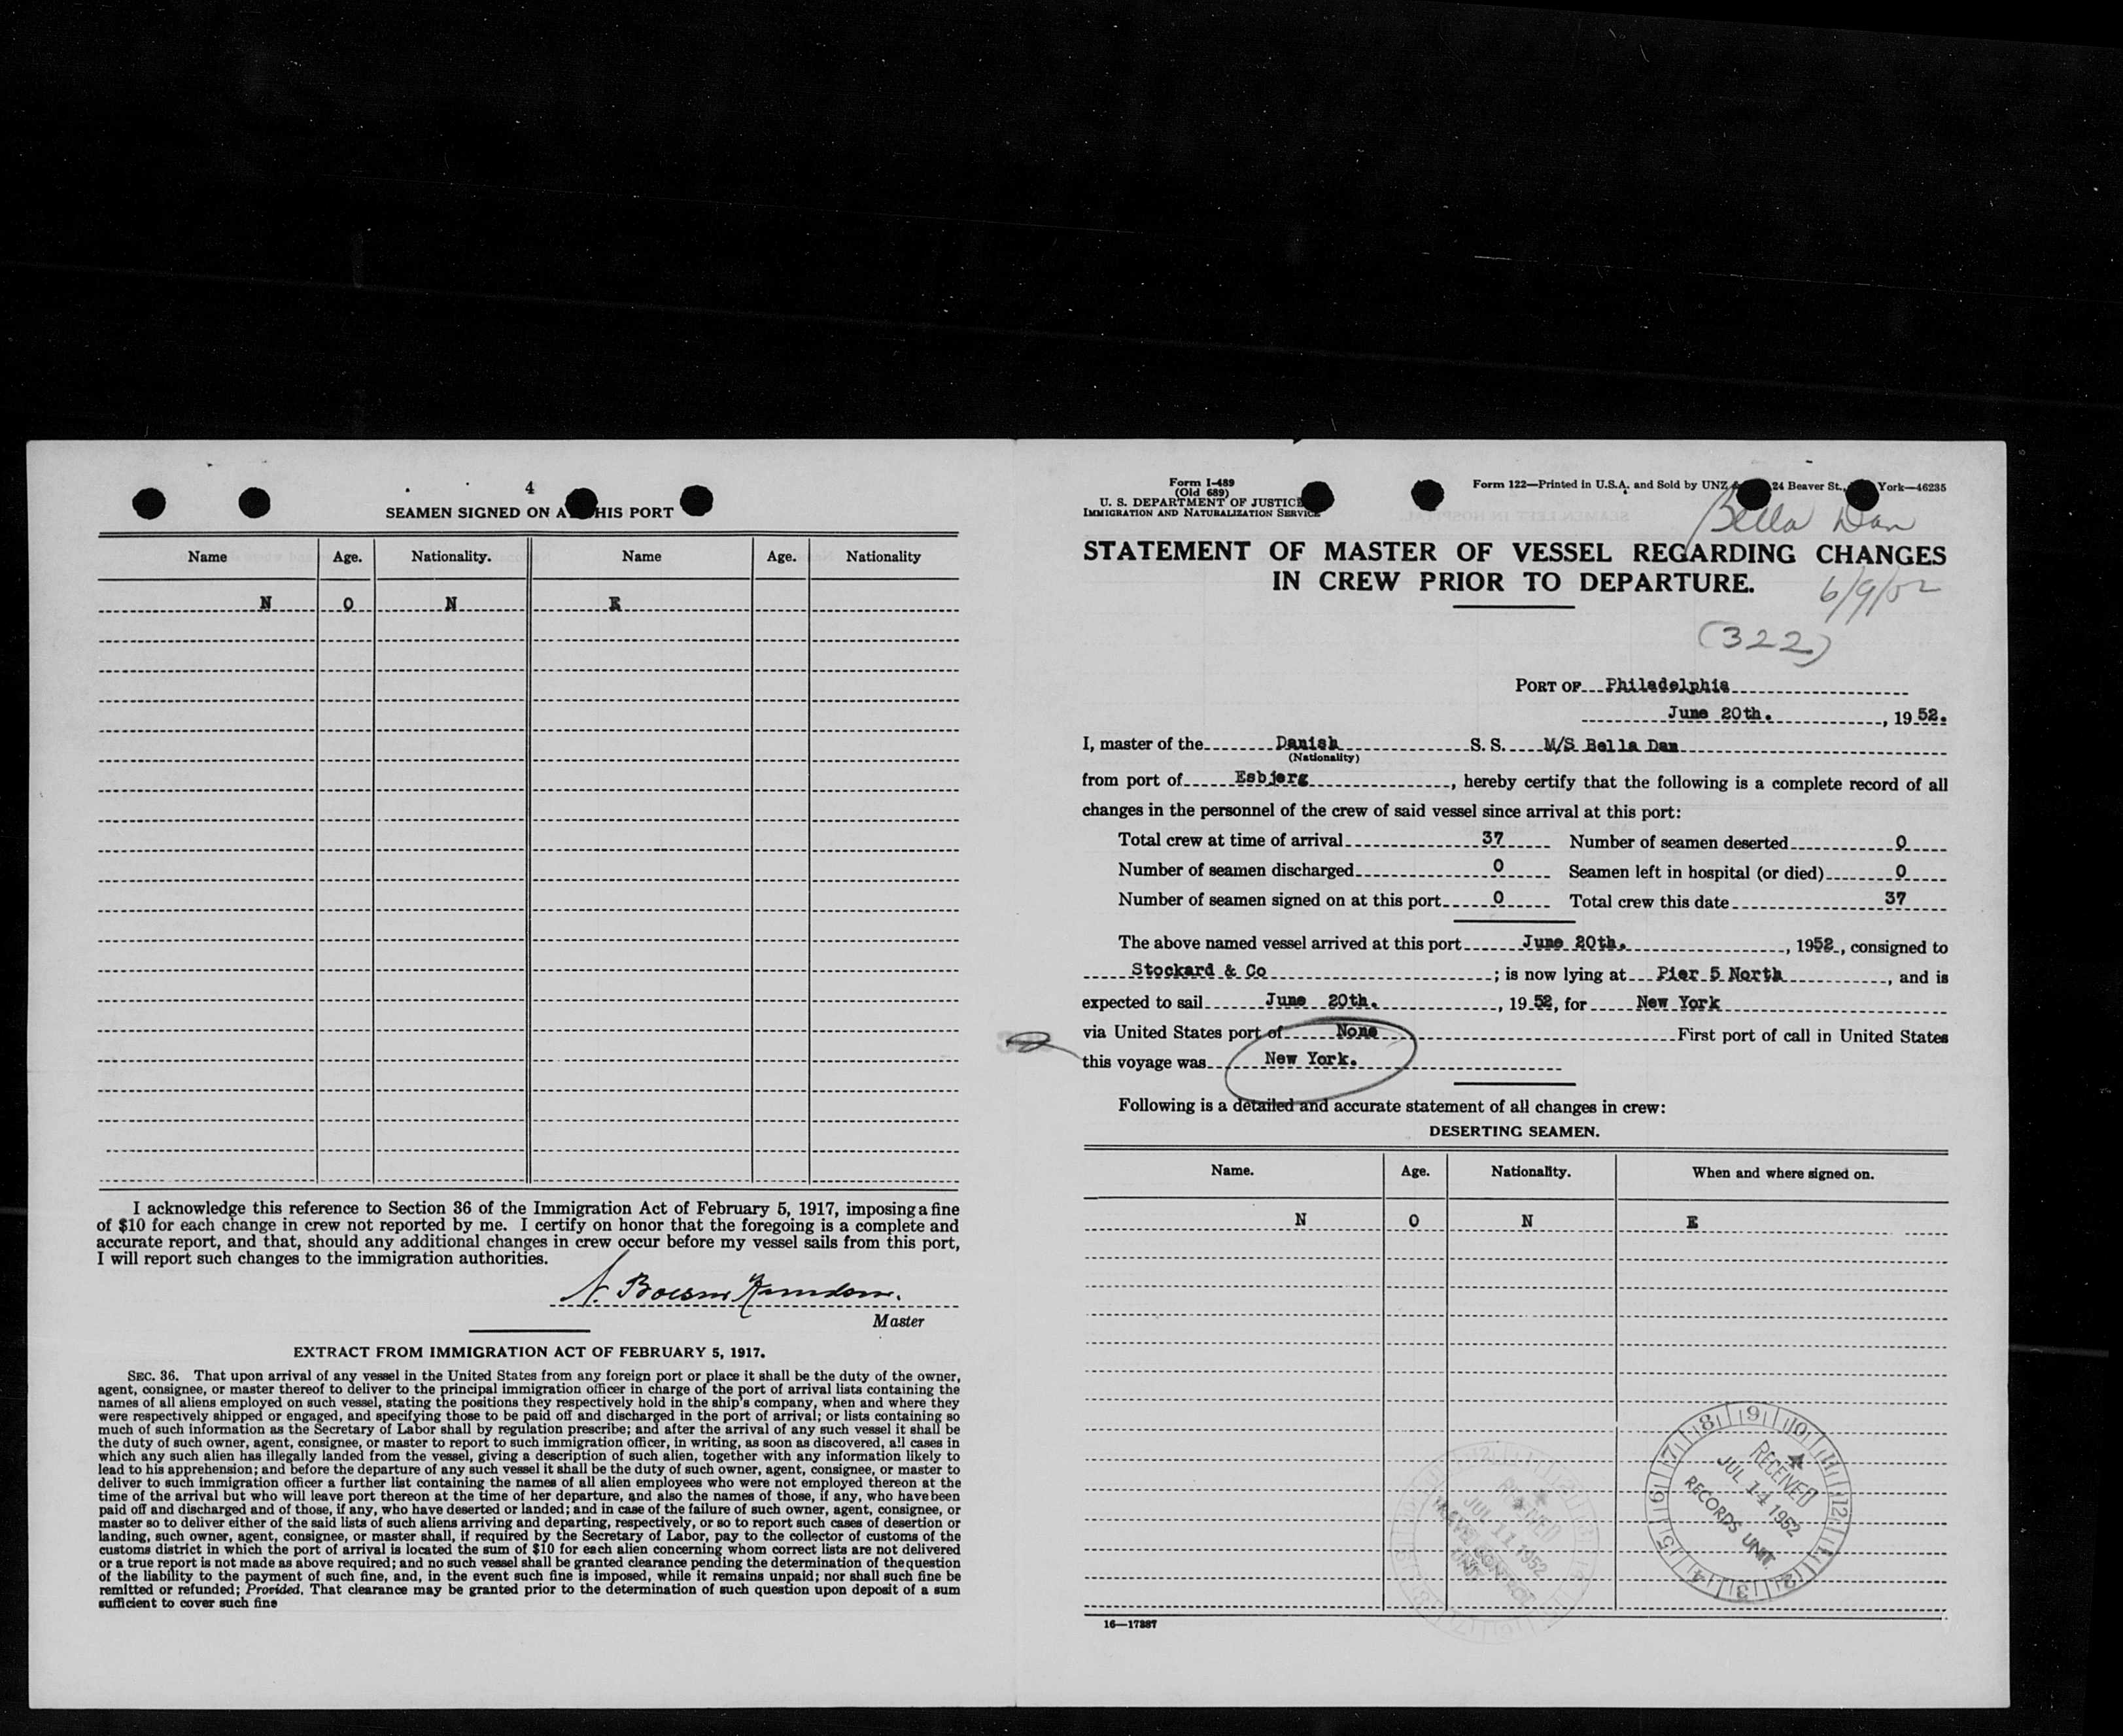 4
SEAMEN SIGNED ON A HIS PORT
Name Age. Nationality. Name Age. Nationality
N O N E
I acknowledge this reference to Section 36 of the Immigration Act of February 5, 1917, imposing a fine
of $10 for each change in crew not reported by me. I certify on honor that the foregoing is a complete and
accurate report, and that, should any additional changes in crew occur before my vessel sails from this port,
I will report such changes to the immigration authorities.
Master
EXTRACT FROM IMMIGRATION ACT OF FEBRUARY 5, 1917.
SEC. 36. That upon arrival of any vessel in the United States from any foreign port or place it shall be the duty of the owner,
agent, consignee, or master thereof to deliver to the principal immigration officer in charge of the port of arrival lists containing the
names of all aliens employed on such vessel, stating the positions they respectively hold in the ship's company, when and where they
were respectively shipped or engaged, and specifying those to be paid off and discharged in the port of arrival; or lists containing so
much of such information as the Secretary of Labor shall by regulation prescribe; and after the arrival of any such vessel it shall be
the duty of such owner, agent, consignee, or master to report to such immigration officer, in writing, as soon as discovered, all cases in
which any such alien has illegally landed from the vessel, giving a description of such alien, together with any information likely to
lead to his apprehension; and before the departure of any such vessel it shall be the duty of such owner, agent, consignee, or master to
deliver to such immigration officer a further list containing the names of all alien employees who were not employed thereon at the
time of the arrival but who will leave port thereon at the time of her departure, and also the names of those, if any, who have been
paid off and discharged and of those, if any, who have deserted or landed; and in case of the failure of such owner, agent, consignee, or
master so to deliver either of the said lists of such aliens arriving and departing, respectively, or so to report such cases of desertion or
landing, such owner, agent, consignee, or master shall, if required by the Secretary of Labor, pay to the collector of customs of the
customs district in which the port of arrival is located the sum of $10 for each alien concerning whom correct lists are not delivered
or a true report is not made as above required; and no such vessel shall be granted clearance pending the determination of the question
of the liability to the payment of such fine, and, in the event such fine is imposed, while it remains unpaid; nor shall such fine be
remitted or refunded; Provided, That clearance may be granted prior to the determination of such question upon deposit of a sum
sufficient to cover such fine
Form I-489
(Old 689)
U. S. DEPARTMENT OF JUSTICE
IMMIGRATION AND NATURALIZATION SERVICE
Form 122—Printed in U.S.A. and Sold by UNZ 24 Beaver St., York—46235
Bella Dan
STATEMENT OF MASTER OF VESSEL REGARDING CHANGES
IN CREW PRIOR TO DEPARTURE.
6/9/52
(322)
PORT OF Philadelphia
June 20th. , 1952.
I, master of the Danish S. S. M/S Bella Dan
(Nationality)
from port of Esbjerg , hereby certify that the following is a complete record of all
changes in the personnel of the crew of said vessel since arrival at this port:
Total crew at time of arrival 37 Number of seamen deserted 0
Number of seamen discharged 0 Seamen left in hospital (or died) 0
Number of seamen signed on at this port 0 Total crew this date 37
The above named vessel arrived at this port June 20th. , 1952 , consigned to
Stockard & Co ; is now lying at Pier 5 North , and is
expected to sail June 20th. , 19 52, for New York
via United States port of None First port of call in United States
this voyage was New York.
Following is a detailed and accurate statement of all changes in crew:
DESERTING SEAMEN.
Name. Age. Nationality. When and where signed on.
N O N E
RECEIVED
JUL 11 1952
RECEIVED
JUL 14 1952
RECORDS UNIT
16—17287